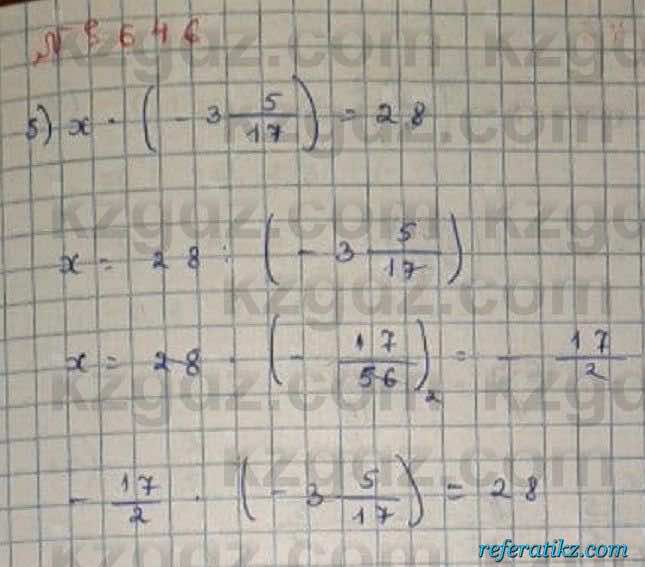 № 646
5) x · (- 3 5/17) = 28
x = 28 : (- 3 5/17)
x = 28 · (- 17/56)₂ = - 17/2
- 17/2 · (- 3 5/17) = 28
kzgdz.com
referatikz.com